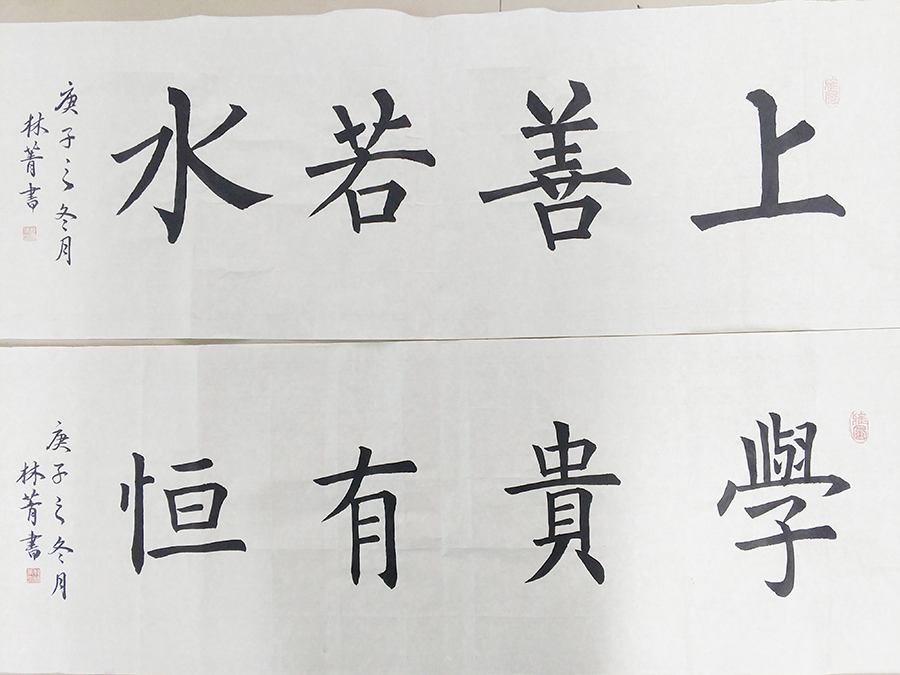 上善若水
庚子之冬月
林菁書
學貴有恒
庚子之冬月
林菁書